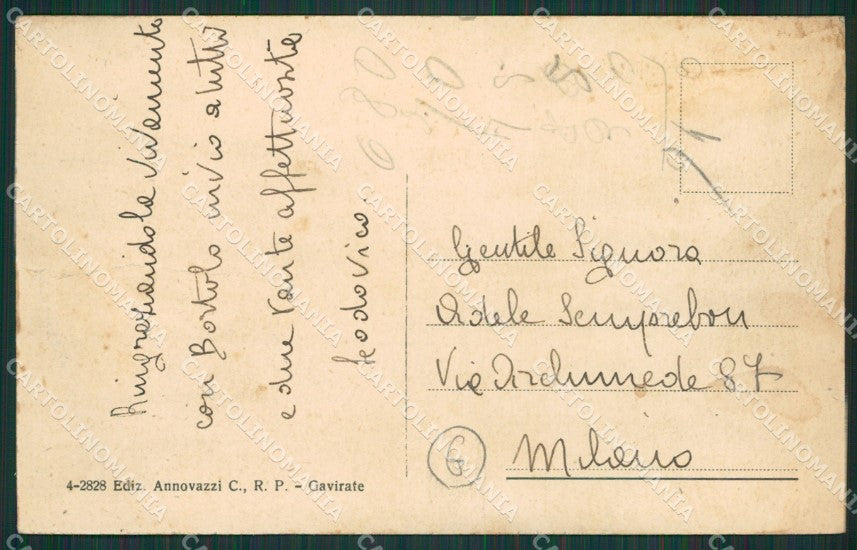 Ringraziandola vivamente
con Bortolo invio a tutti
e due tante affettuosità
Leodovico.
Gentile Signora
Adele Semprebon
Via Archimede 87
Milano
G
4-2828 Ediz. Annovazzi C., R. P. - Gavirate
CARTOLINOMANIA